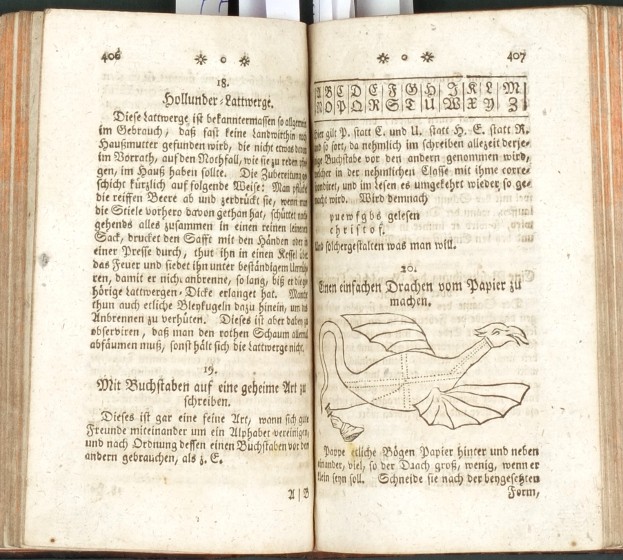 406
18.
Hollunder-Lattwerge.
Diese Lattwerge ist bekanntermassen so allgemein
im Gebrauch, daß fast keine Landwirthin noch
Haußmutter gefunden wird, die nicht etwas davon
im Vorrath, auf den Nothfall, wie sie zu reden pfle-
gen, im Hauß haben sollte. Die Zubereitung ge-
schicht kürzlich auf folgende Weise: Man pflückt
die reiffen Beere ab und zerdrückt sie, wenn man
die Stiele vorhero davon gethan hat, schüttet nach-
gehends alles zusammen in einen reinen leinenen
Sack, drucket den Safft mit den Händen oder in
einer Presse durch, thut ihn in einen Kessel über
das Feuer und siedet ihn unter beständigem Umrüh-
ren, damit er nicht anbrenne, so lang, biß er die ge-
hörige Lattwergen-Dicke erlanget hat. Manche
thun auch etliche Bleykugeln dazu hinein, um das
Anbrennen zu verhüten. Dieses ist aber dabey zu
observiren, daß man den rothen Schaum allemal
abfäumen muß, sonst hält sich die Lattwerge nicht.
19.
Mit Buchstaben auf eine geheime Art zu
schreiben.
Dieses ist gar eine feine Art, wann sich gute
Freunde miteinander um ein Alphabet vereinigen,
und nach Ordnung dessen einen Buchstaben vor den
andern gebrauchen, als z. E.
A | B
407
A B C D E F G H J K L M
N O P Q R S T U W X Y Z
Hier gilt P. statt C. und U. statt H. E. statt R.
und so fort, da nehmlich im schreiben allezeit derje-
nige Buchstabe vor den andern genommen wird,
welcher in der nehmlichen Classe mit ihme corre-
spondiret, und im Lesen es umgekehrt wieder so ge-
macht wird. Wird demnach
puewfgbs gelesen
christof.
Und solchergestalten was man will.
20.
Einen einfachen Drachen vom Papier zu
machen.
Pappe etliche Bögen Papier hinter und neben
einander, viel, so der Drach groß, wenig, wenn er
klein seyn soll. Schneide sie nach der beygesetzten
Form,